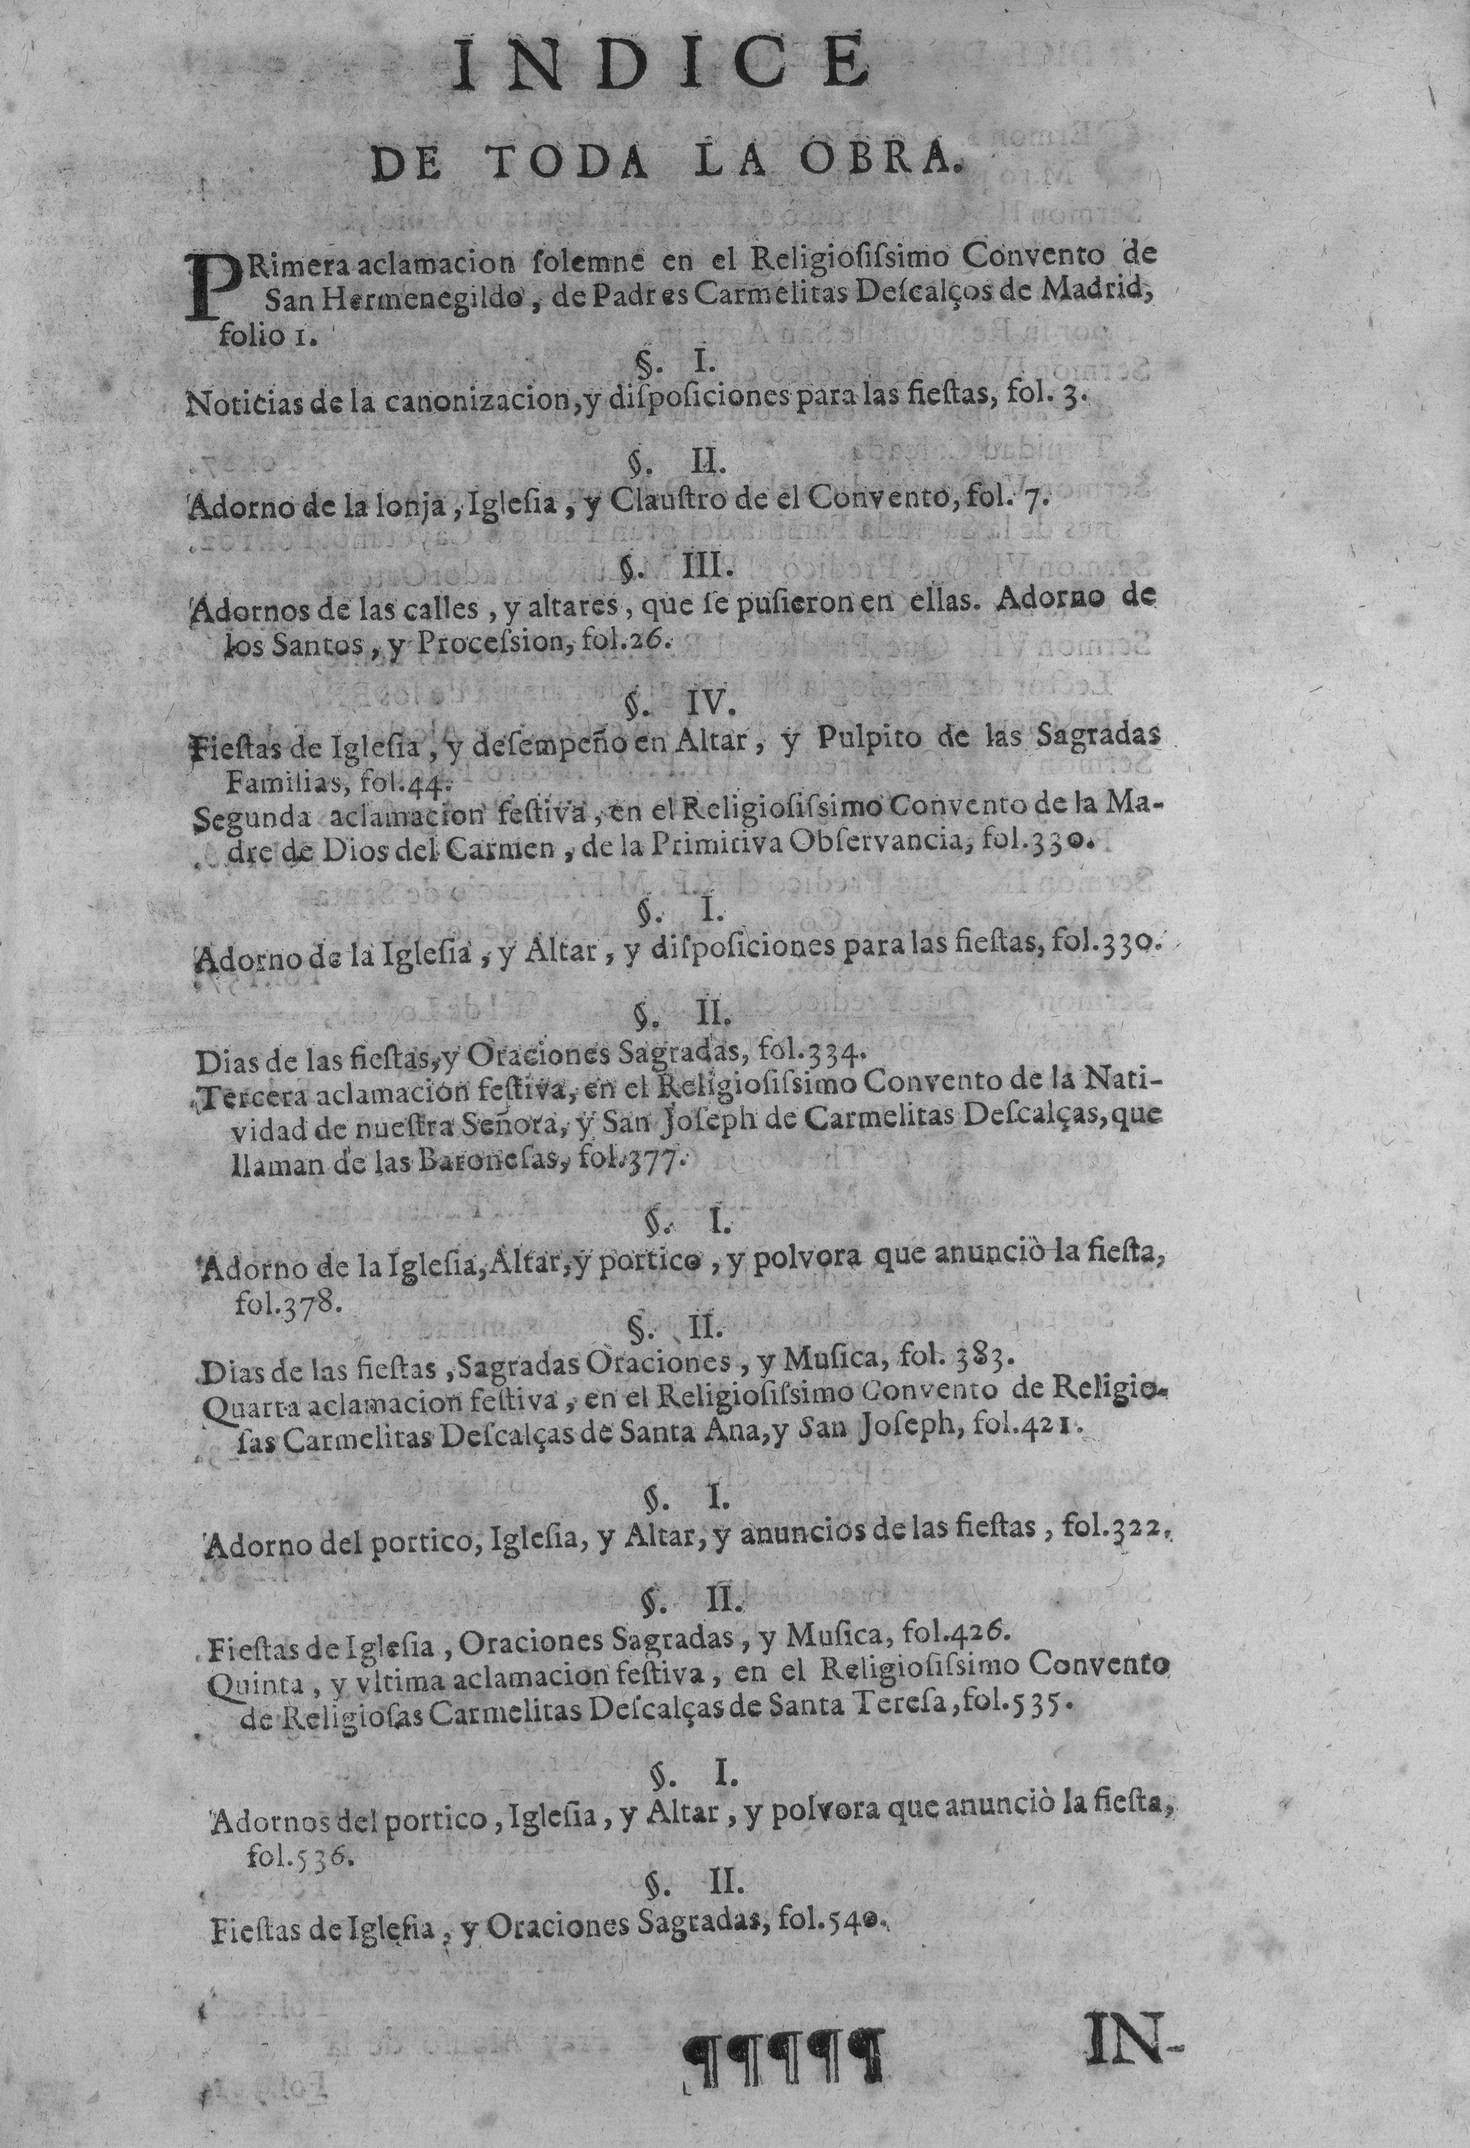 INDICE
DE TODA LA OBRA.
PRimera aclamacion solemne en el Religiosissimo Convento de
San Hermenegildo, de Padres Carmelitas Descalços de Madrid,
folio 1.
§. I.
Noticias de la canonizacion, y disposiciones para las fiestas, fol. 3.
§. II.
Adorno de la lonja, Iglesia, y Claustro de el Convento, fol. 7.
§. III.
Adornos de las calles, y altares, que se pusieron en ellas. Adorno de
los Santos, y Procession, fol.26.
§. IV.
Fiestas de Iglesia, y desempeño en Altar, y Pulpito de las Sagradas
Familias, fol.44.
Segunda aclamacion festiva, en el Religiosissimo Convento de la Ma-
dre de Dios del Carmen, de la Primitiva Observancia, fol.330.
§. I.
Adorno de la Iglesia, y Altar, y disposiciones para las fiestas, fol.330.
§. II.
Dias de las fiestas, y Oraciones Sagradas, fol.334.
Tercera aclamacion festiva, en el Religiosissimo Convento de la Nati-
vidad de nuestra Señora, y San Joseph de Carmelitas Descalças, que
llaman de las Baronesas, fol.377.
§. I.
Adorno de la Iglesia, Altar, y portico, y polvora que anunciò la fiesta,
fol.378.
§. II.
Dias de las fiestas, Sagradas Oraciones, y Musica, fol. 383.
Quarta aclamacion festiva, en el Religiosissimo Convento de Religio-
sas Carmelitas Descalças de Santa Ana, y San Joseph, fol.421.
§. I.
Adorno del portico, Iglesia, y Altar, y anuncios de las fiestas, fol.322.
§. II.
Fiestas de Iglesia, Oraciones Sagradas, y Musica, fol.426.
Quinta, y vltima aclamacion festiva, en el Religiosissimo Convento
de Religiosas Carmelitas Descalças de Santa Teresa, fol.535.
§. I.
Adornos del portico, Iglesia, y Altar, y polvora que anunciò la fiesta,
fol.536.
§. II.
Fiestas de Iglesia, y Oraciones Sagradas, fol.540.
¶¶¶¶¶ IN-